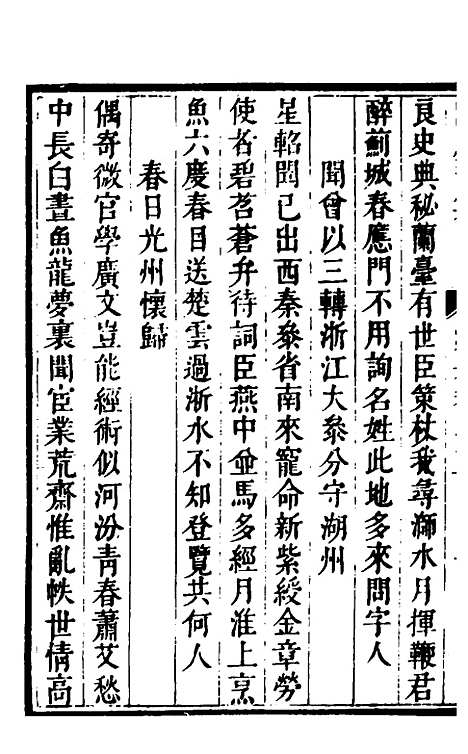 良史典秘蘭臺有世臣策杖我尋㴲水月揮鞭君
醉薊城春應門不用詢名姓此地多來問字人
聞曾以三轉浙江大叅分守湖州
星軺聞已出西秦叅省南來寵命新紫綬金章勞
使者碧苕蒼弁待詞臣燕中並馬多經月淮上烹
魚六慶春目送楚雲過浙水不知登覽共何人
春日光州懷歸
偶寄微官學廣文豈能經術似河汾靑春蕭艾愁
中長白晝魚龍夢裏聞宦業荒齋惟亂帙世情高